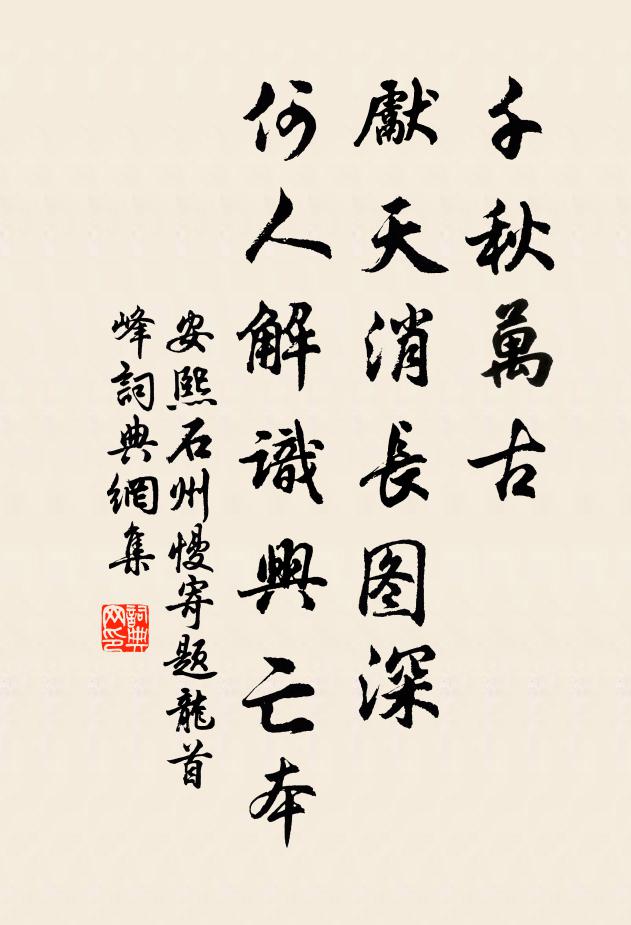 千秋萬古
獻天消長图深
何人解識興亡本
安熙石州慢寄题龍首
峰詞典網集
詞典网印